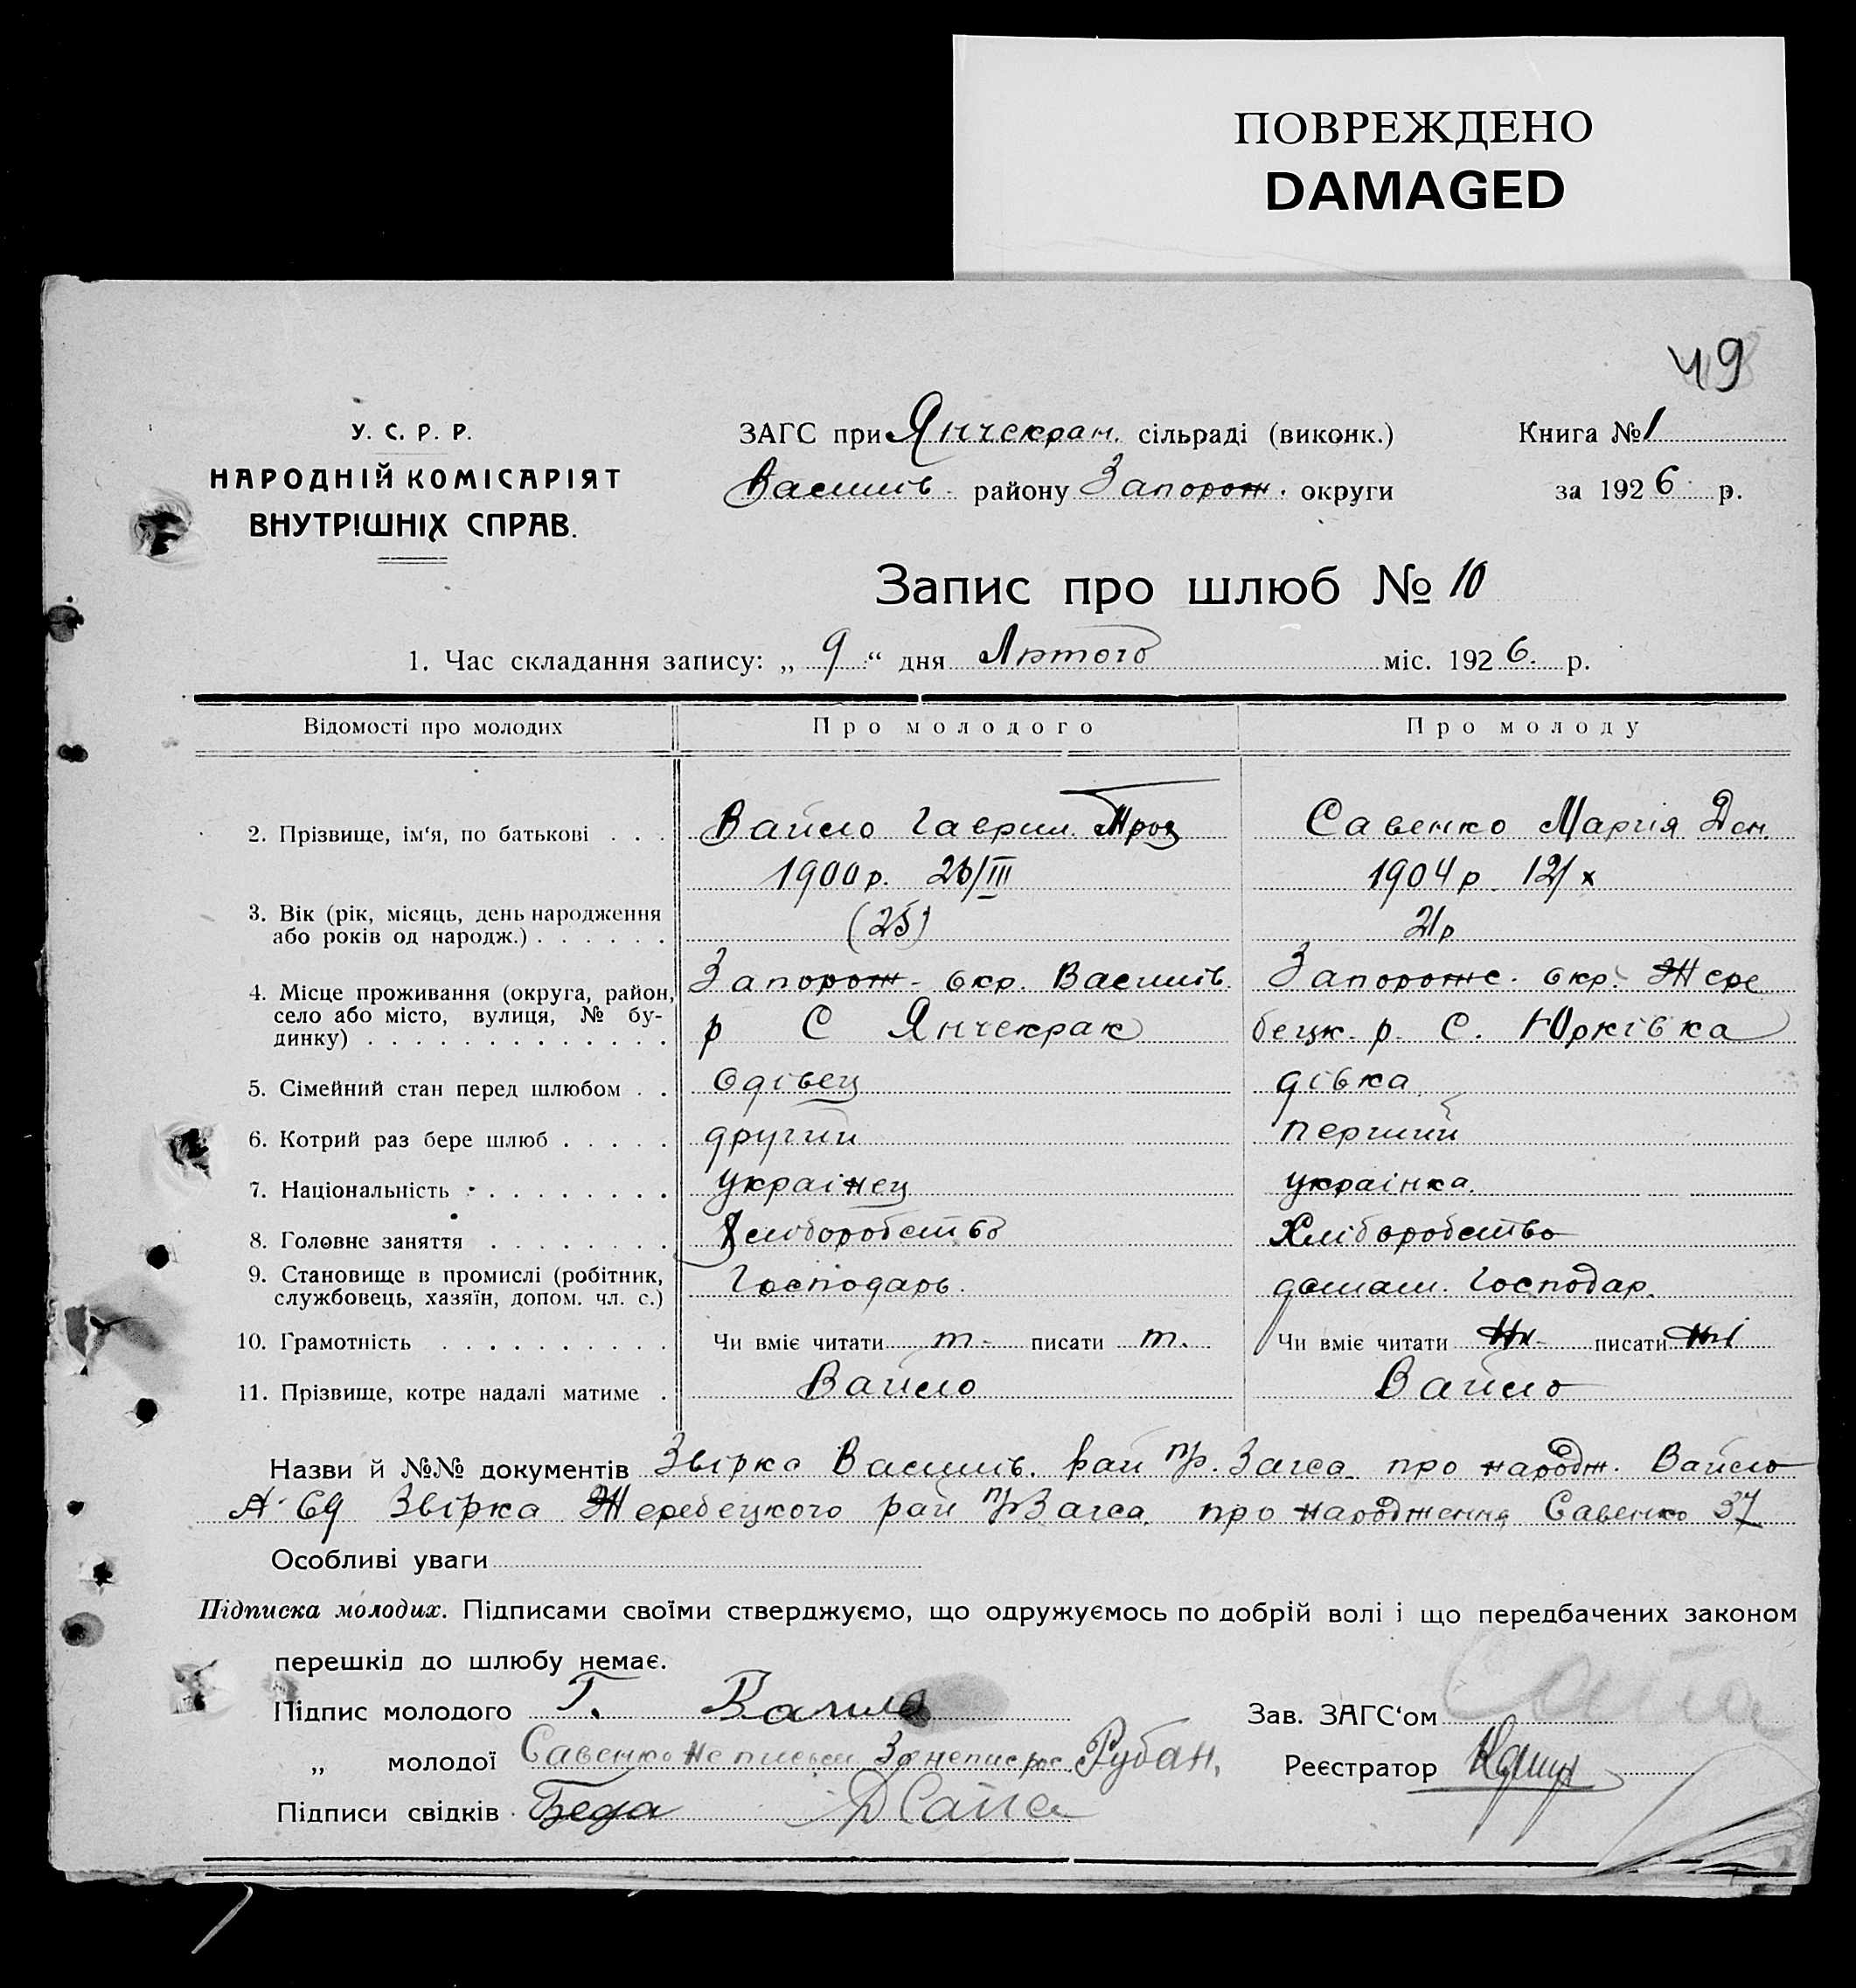 ПОВРЕЖДЕНО
DAMAGED
49
У. С. Р. Р.
НАРОДНІЙ КОМІСАРІЯТ
ВНУТРІШНІХ СПРАВ.
ЗАГС при Янчекрак. сільраді (виконк.)
Василів. району Запорож. округи
Книга № 1
за 1926 р.
Запис про шлюб № 10
1. Час складання запису: „ 9 “ дня Лютого міс. 1926. р.
Відомості про молодих Про молодого Про молоду
2. Прізвище, ім‘я, по батькові . . . Вайло Гаврил Савенко Мария Дем.
1900 р. 1904 р. 12/x
3. Вік (рік, місяць, день народження
або років од народж.) . . . . . . (25) 21р
4. Місце проживання (округа, район, Запорож- окр. Василів. Запорож. окр. Жере
село або місто, вулиця, № бу- р С Янчекрак бецк. р. С. Юрківка
динку) . . . . . . . . . . . . .
5. Сімейний стан перед шлюбом . . вдівец дівка
6. Котрий раз бере шлюб . . . . . другий перший
7. Національність . . . . . . . . українец українка.
8. Головне заняття . . . . . . . . Хліборобство Хліборобство
9. Становище в промислі (робітник, Господарь. домаш. господар.
службовець, хазяїн, допом. чл. с.)
10. Грамотність . . . . . . . . . . Чи вміє читати т- писати т. Чи вміє читати писати
11. Прізвище, котре надалі матиме . Вайло Вайло
Назви й №№ документів Звірка Василів. рай пр. Загса про народж. Вайло
№ 69 Звірка Жеребецкого рай пр Загса. про народження Савенко 37
Особливі уваги
Підписка молодих. Підписами своїми стверджуємо, що одружуємось по добрій волі і що передбачених законом
перешкід до шлюбу немає.
Підпис молодого Г. Вайло Зав. ЗАГС‘ом
„ молодої Савенко Рубан, Реєстратор
Підписи свідків Беда